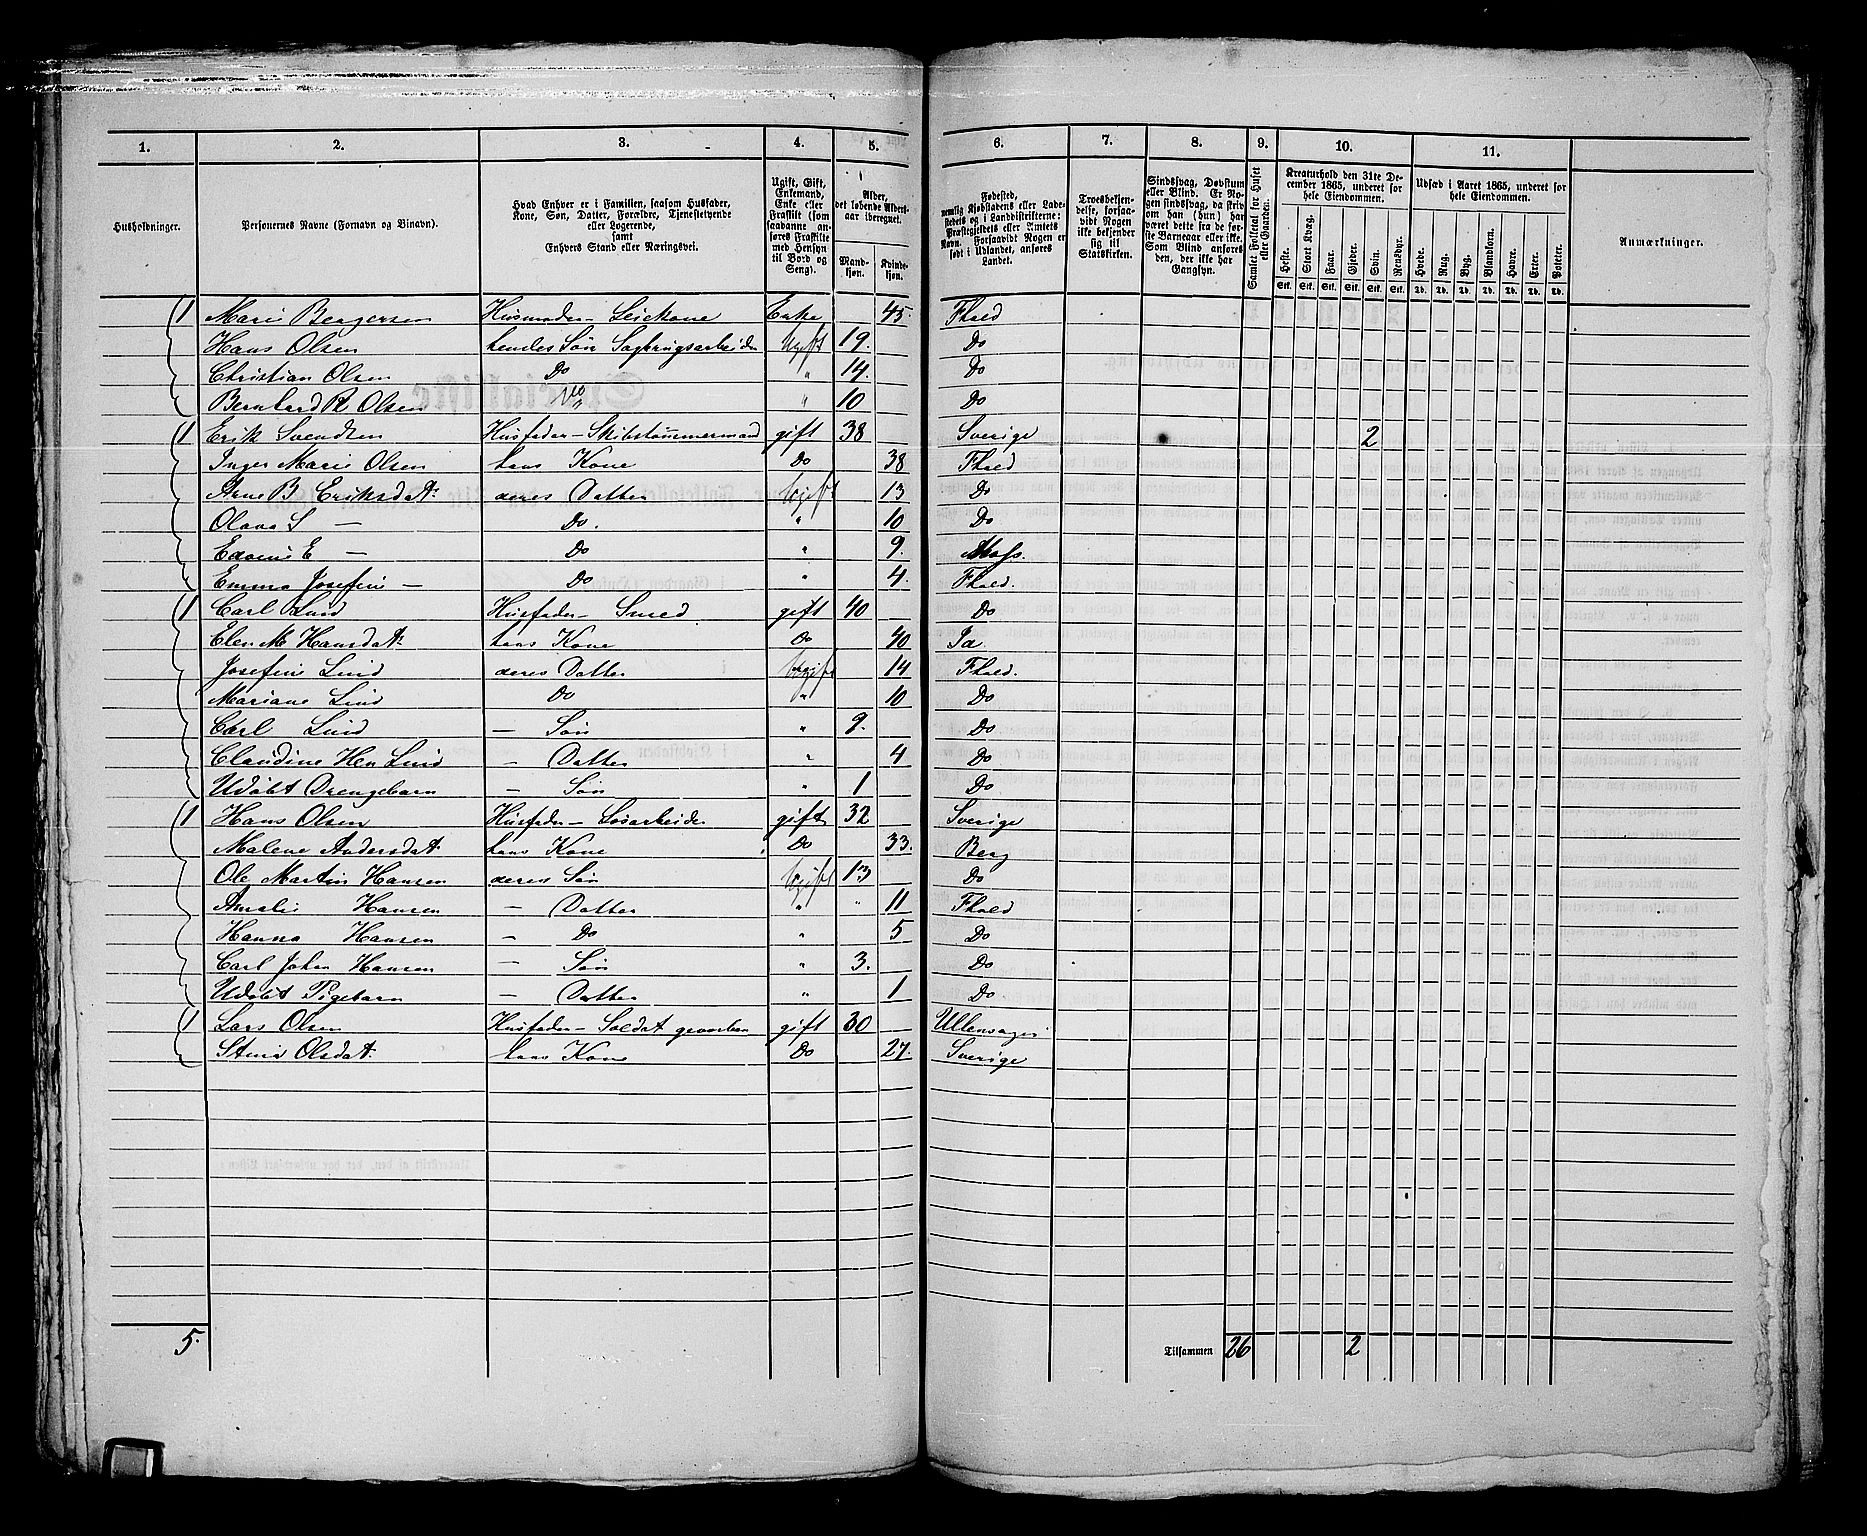 1. 2. 3. 4. 5. 6. 7. 8. 9. 10. 11.
Husholdninger.
Personernes Navne (Fornavn og Binavn).
Hvad Enhver er i Familien, saasom Husfader, Kone, Søn, Datter, Forældre, Tjenestetyende eller Logerende, samt Enhvers Stand eller Næringsvei.
Ugift, Gift, Enkemand, Enke eller Fraskilt (som saadanne anføres Fraskilte med Hensyn til Bord og Seng).
Alder, det løbende Aldersaar iberegnet.
Mandkjøn. Kvindekjøn.
Fødested, nemlig Kjøbstadens eller Ladestedets og i Landdistrikterne: Præstegjeldets eller Amtets Navn. Forsaavidt Nogen er født i Udlandet, anføres Landet.
Troesbekjendelse, forsaavidt Nogen ikke bekjender sig til Statskirken.
Sindssvag, Døvstum eller Blind. Er Nogen sindssvag, da skrives om han (hun) har været dette fra de første Barneaar eller ikke. Som Blind ansees den, der ikke har Gangsyn.
Samlet Folketal for Huset eller Gaarden.
Kreaturhold den 31te December 1865, underet for hele Eiendommen.
Heste. Stort Kvæg. Faar. Gjeder. Svin. Rensdyr.
Stk. Stk. Stk. Stk. Stk. Stk.
Udsæd i Aaret 1865, underet for hele Eiendommen.
Hvede. Rug. Byg. Blandkorn. Havre. Erter. Poteter.
Td. Td. Td. Td. Td. Td. Td.
Anmærkninger.
1 Marie Bergersen Husmoder - Leiekone Enke 45 Fhald
Hans Olsen hendes Søn Sagbrugsarbeider Ugift 19. Do
Christian Olsen Do " 14. Do
Bernhard Olsen Do " 10 Do
1 Erik Svendsen Husfader - Skibstømmermand gift 38 Sverige 2
Inger Marie Olsen hans Kone Do 38 Fhald
Anne B Eriksdat. deres Datter Ugift 13 Do
Olava S — Do. " 10 Do
E — Do " 9. Moss.
Emma Josefine — Do " 4. Fhald.
1 Carl Lind Husfader - Smed gift 40 Do
Elen M Hansdat. hans Kone Do 40 Id
Josefine Lind deres Datter Ugift 14 Fhald.
Mariane Lind Do " 10 Do
Carl Lind — Søn " 9. Do
Claudine Hen Lind — Datter " 4 Do
Udøbt Drengebarn — Søn " 1 Do
1 Hans Olsen Husfader - Losarbeider gift 32 Sverige
Malene Andersdat. hans Kone Do 33. Berg
Ole Martin Hansen deres Søn Ugift 13 Do
Amalie Hansen — Datter " " 11 Fhald
Hanna Hansen — Do " 5 Do
Carl Johan Hansen — Søn " 3. Do
Udøbt Pigebarn — Datter " 1 Do
1 Lars Olsen Husfader - Soldat gevorben gift 30 Ullensager
Stina Olsdat. hans Kone Do 27. Sverige
5. Tilsammen 26 2